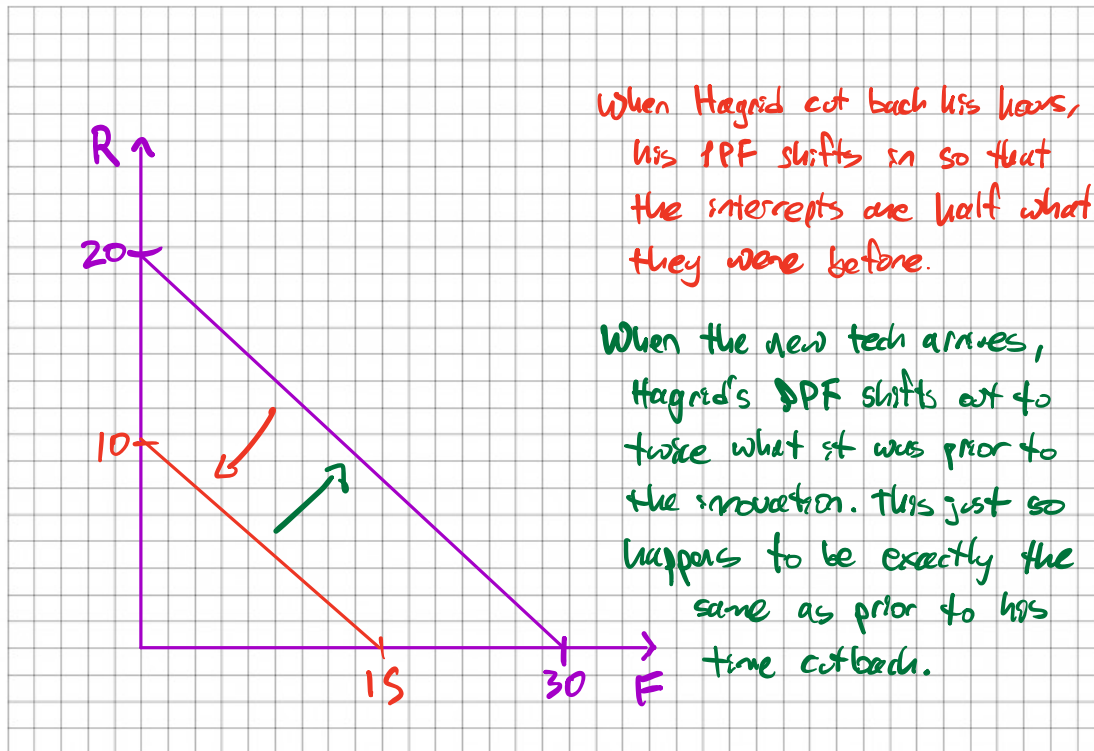 When Hagrid cut back his hours,
his PPF shifts in so that
the intercepts are half what
they were before.
R
20
When the new tech arrives,
Hagrid's PPF shifts out to
10
twice what it was prior to
the innovation. This just so
happens to be exactly the
same as prior to his
time cutback.
15
30
F